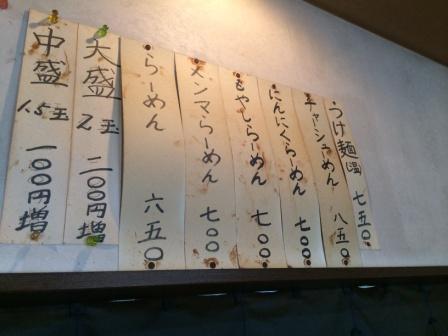 つけ麺 温 七五〇
チャーシューめん 八五〇
にんにくらーめん 七〇〇
もやしらーめん 七〇〇
メンマらーめん 七〇〇
らーめん 六五〇
大盛 2玉 二〇〇円増
中盛 1.5玉 一〇〇円増